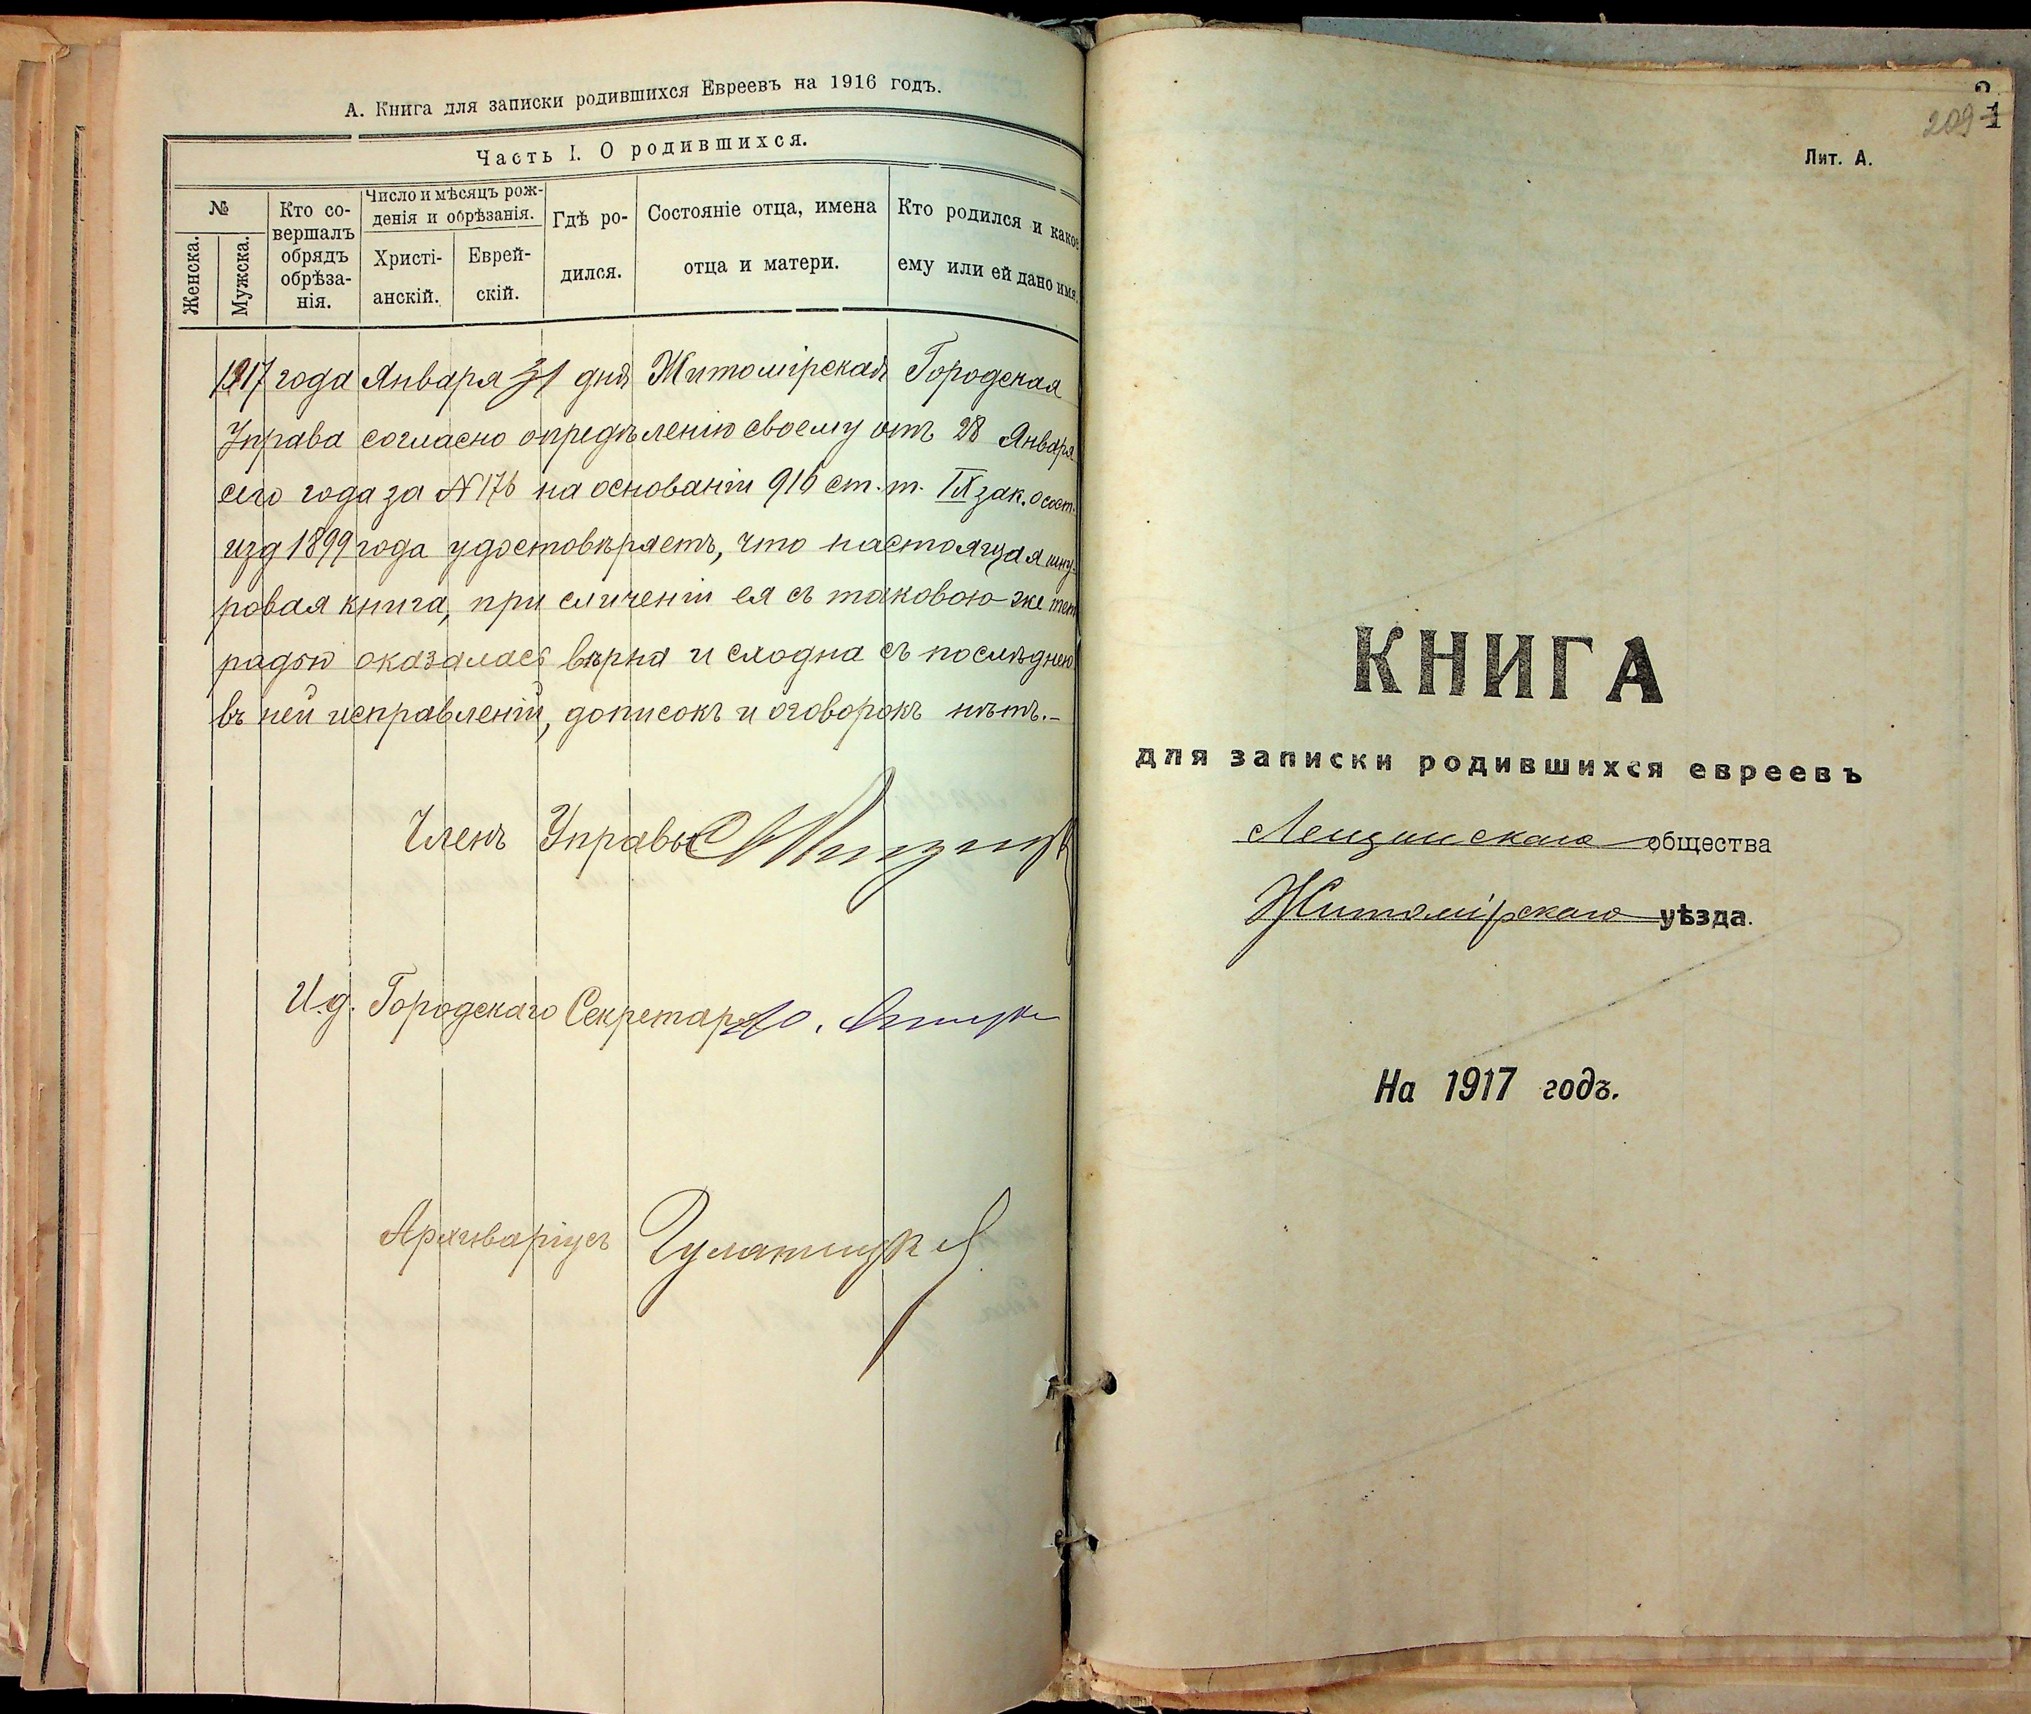 А. Книга для записки родившихся Евреевъ на 1916 годъ.
Часть I. О родившихся.
№
Женска.
Мужска.
Кто со-
вершалъ
обрядъ
обрѣза-
нія.
Число и мѣсяцъ рож-
денія и обрѣзанія.
Христі-
анскій.
Еврей-
скій.
Гдѣ ро-
дился.
Состояніе отца, имена
отца и матери.
Кто родился и какое
ему или ей дано имя.
1917 года Января 31 дня Житомірская Городская
Управа согласно опредѣленію своему отъ 28 Января
сего года за № 176 на основаніи 916 ст. т. IX зак. о сост.
изд 1899 года удостовѣряетъ, что настоящая шну-
ровая книга, при сличеніи ея съ таковою же тет
радью оказалась вѣрна и сходна съ послѣднею
въ ней исправленій, дописокъ и оговорокъ нѣтъ.-
Членъ Управы
И. д. Городскаго Секретаря
Архиваріусъ
209 1
Лит. А.
КНИГА
для записки родившихся евреевъ
Лещинскаго общества
Житомірскаго уѣзда.
На 1917 годъ.